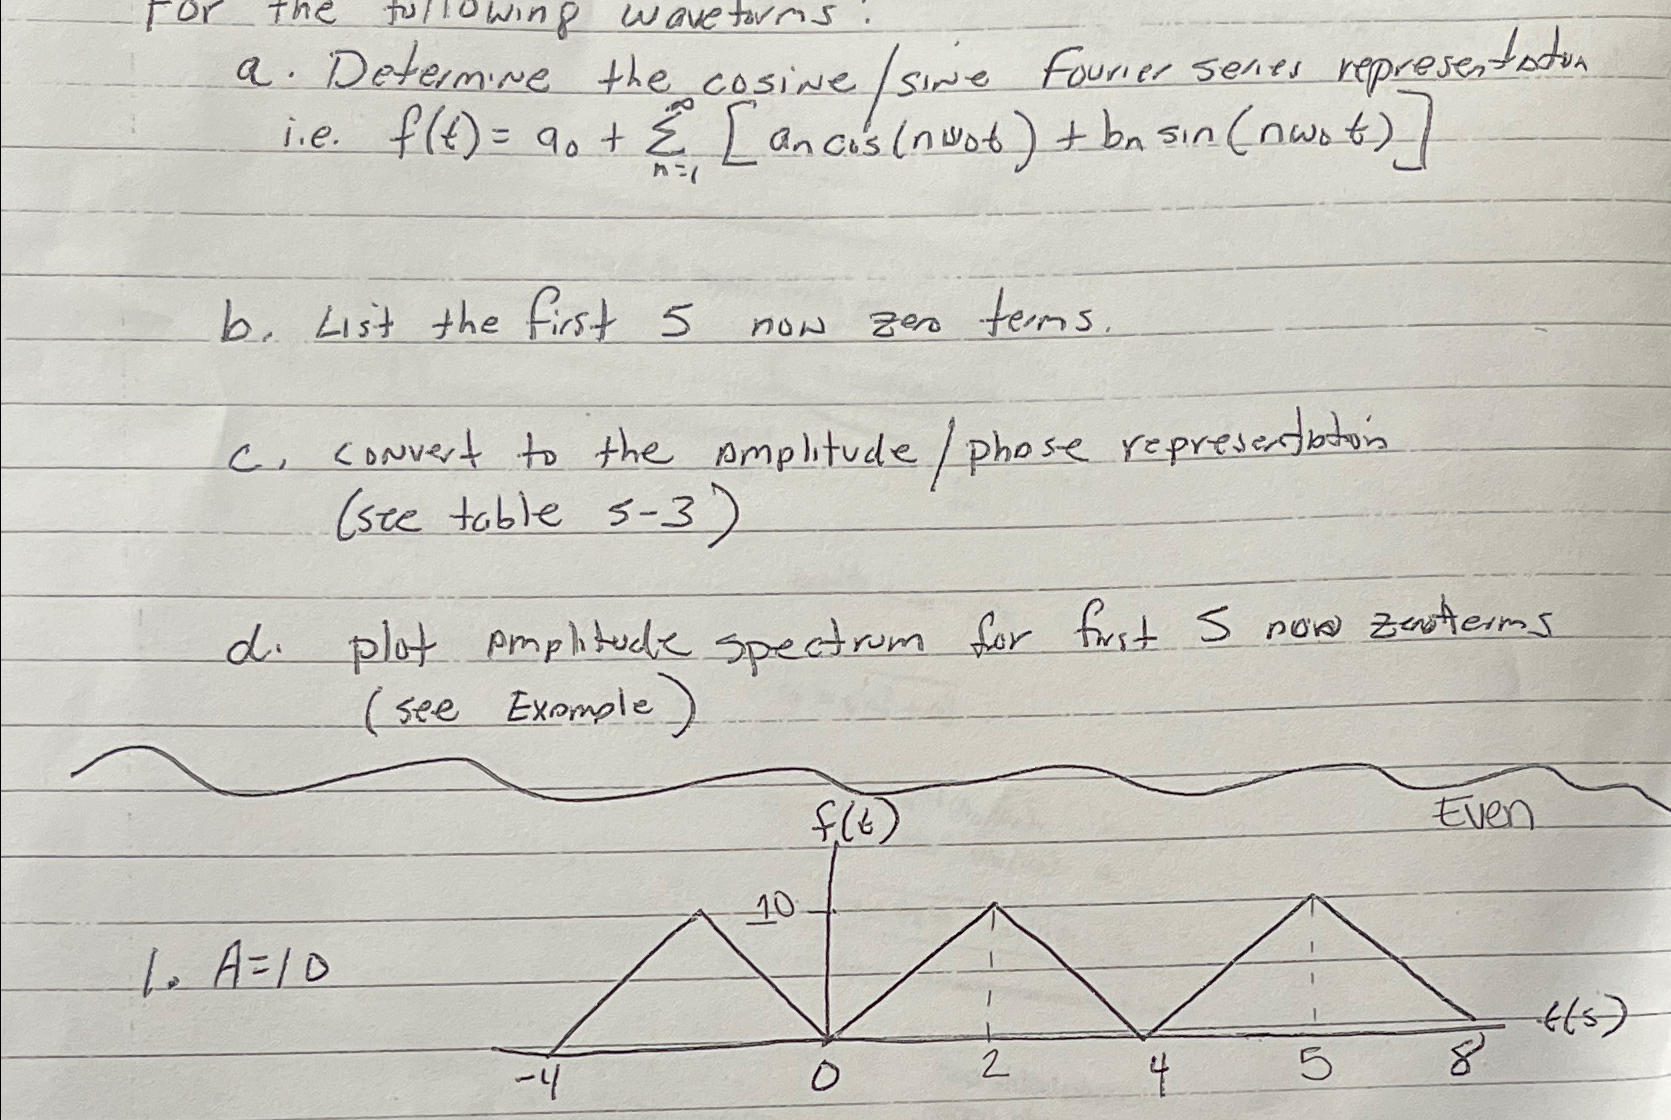 For the following waveforms:
a. Determine the cosine/sine Fourier series representation
i.e. f(t) = a₀ + ∞∑n=1 [an cos(nω₀t) + bn sin(nω₀t)]
b. List the first 5 non zero terms.
c. convert to the amplitude/phase representation
(see table 5-3)
d. plot amplitude spectrum for first 5 non zero terms
(see Example)
f(t)
Even
10
1. A=10
t(s)
-4 0 2 4 5 8